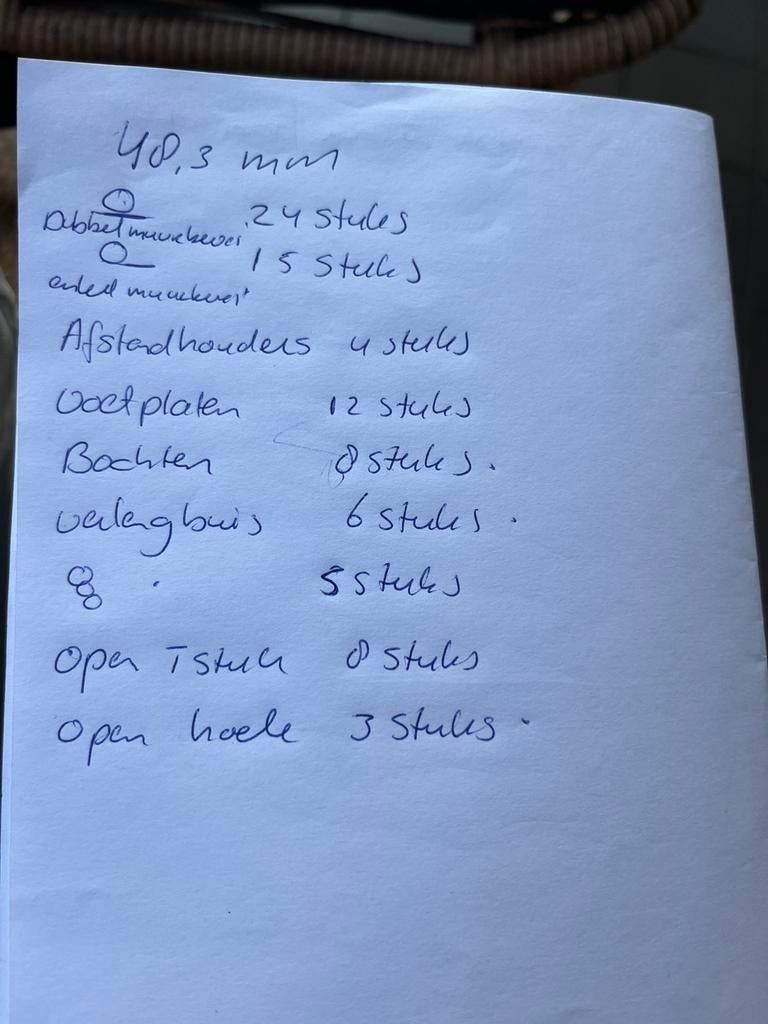 48,3 mm
24 stuks
Dubbel muurbevei
15 stuks
enkel muurbevei
Afstandhouders 4 stuks
Voetplaten 12 stuks
Bochten 8 stuks.
verlengbuis 6 stuks.
5 stuks
Open T stuk 8 stuks
Open hoek 3 stuks.